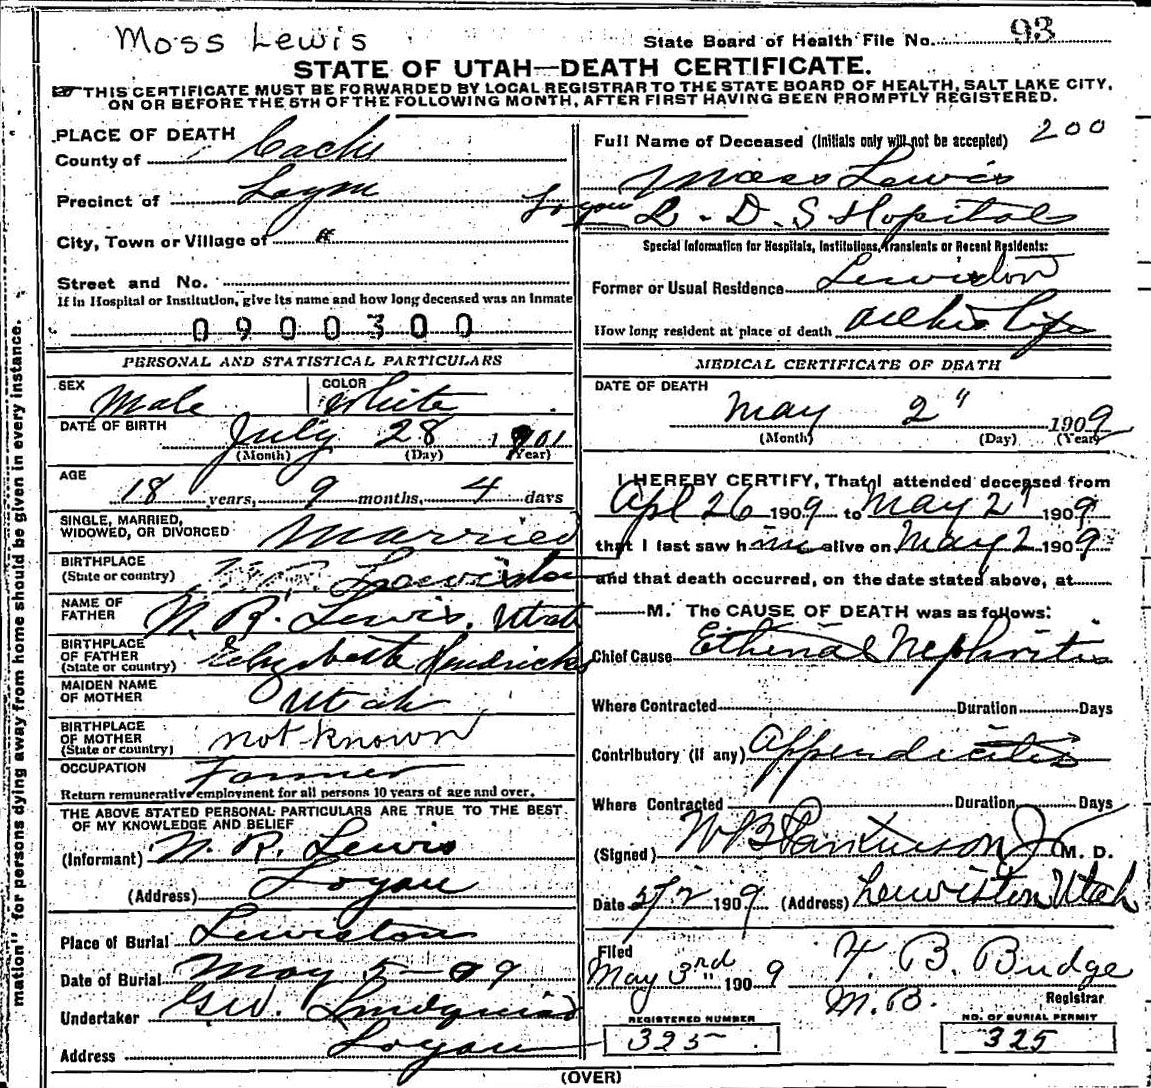 Moss Lewis
State Board of Health File No. 93
STATE OF UTAH—DEATH CERTIFICATE.
THIS CERTIFICATE MUST BE FORWARDED BY LOCAL REGISTRAR TO THE STATE BOARD OF HEALTH, SALT LAKE CITY,
ON OR BEFORE THE 5TH OF THE FOLLOWING MONTH, AFTER FIRST HAVING BEEN PROMPTLY REGISTERED.
PLACE OF DEATH
County of Cache
Precinct of Logan
City, Town or Village of "
Street and No.
If in Hospital or Institution, give its name and how long deceased was an inmate
0900300
200
Full Name of Deceased (Initials only will not be accepted)
Moss Lewis
Logan L. D. S Hopital
Special Information for Hospitals, Institutions, Transients or Recent Residents:
Former or Usual Residence Lewiston
How long resident at place of death All his life
PERSONAL AND STATISTICAL PARTICULARS
SEX Male
COLOR White
DATE OF BIRTH July 28 1901
(Month) (Day) (Year)
AGE 18 years, 9 months, 4 days
SINGLE, MARRIED,
WIDOWED, OR DIVORCED Married
BIRTHPLACE
(State or country) Lewiston
NAME OF
FATHER W. R. Lewis, Utah
BIRTHPLACE
OF FATHER
(State or country) Elizabeth Hendricks
MAIDEN NAME
OF MOTHER Utah
BIRTHPLACE
OF MOTHER
(State or country) not known
OCCUPATION Farmer
Return remunerative employment for all persons 10 years of age and over.
THE ABOVE STATED PERSONAL PARTICULARS ARE TRUE TO THE BEST
OF MY KNOWLEDGE AND BELIEF
(Informant) W. R. Lewis
(Address) Logan
Place of Burial Lewiston
Date of Burial May 5-09
Undertaker G.W. Lindquist
Address Logan
MEDICAL CERTIFICATE OF DEATH
DATE OF DEATH
May 2" 1909
(Month) (Day) (Year)
I HEREBY CERTIFY, That I attended deceased from
Apl 26 1909 to May 2" 1909
that I last saw him alive on May 2 1909
and that death occurred, on the date stated above, at
M. The CAUSE OF DEATH was as follows:
Chief Cause Nephritis
Where Contracted Duration Days
Contributory (if any) Appendicitis
Where Contracted Duration Days
(Signed) W B Parkinson Jr M. D.
Date 5/2 1909 (Address) Lewiston Utah
Filed
May 3rd 1909 B. Budge
Registrar
REGISTERED NUMBER
325
NO. OF BURIAL PERMIT
325
(OVER)
mation" for persons dying away from home should be given in every instance.